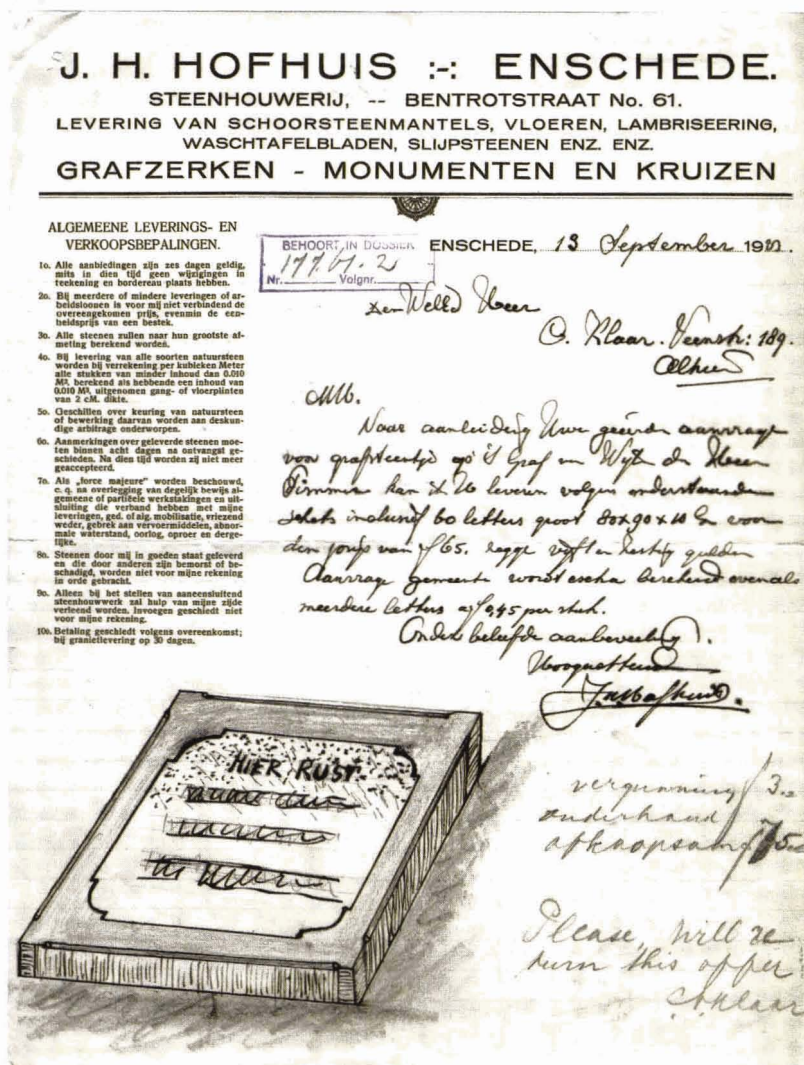 J. H. HOFHUIS :-: ENSCHEDE.
STEENHOUWERIJ, -- BENTROTSTRAAT No. 61.
LEVERING VAN SCHOORSTEENMANTELS, VLOEREN, LAMBRISEERING,
WASCHTAFELBLADEN, SLIJPSTEENEN ENZ. ENZ.
GRAFZERKEN - MONUMENTEN EN KRUIZEN
ALGEMEENE LEVERINGS- EN
VERKOOPSBEPALINGEN.
1o. Alle aanbiedingen zijn zes dagen geldig,
mits in dien tijd geen wijzigingen in
teekening en bordereau plaats hebben.
2o. Bij meerdere of mindere leveringen of ar-
beidsloonen is voor mij niet verbindend de
overeengekomen prijs, evenmin de een-
heidsprijs van een bestek.
3o. Alle steenen zullen naar hun grootste af-
meting berekend worden.
4o. Bij levering van alle soorten natuursteen
worden bij verrekening per kubieken Meter
alle stukken van minder inhoud dan 0.010
M³. berekend als hebbende een inhoud van
0.010 M³. uitgenomen gang- of vloerplinten
van 2 cM. dikte.
5o. Geschillen over keuring van natuursteen
of bewerking daarvan worden aan deskun-
dige arbitrage onderworpen.
6o. Aanmerkingen over geleverde steenen moe-
ten binnen acht dagen na ontvangst ge-
schieden. Na dien tijd worden zij niet meer
geaccepteerd.
7o. Als „force majeure” worden beschouwd,
c. q. na overlegging van degelijk bewijs al-
gemeene of partieele werkstakingen en uit-
sluiting die verband hebben met mijne
leveringen, ged. of alg. mobilisatie, vriezend
weder, gebrek aan vervoermiddelen, abnor-
male waterstand, oorlog, oproer en derge-
lijke.
8o. Steenen door mij in goeden staat geleverd
en die door anderen zijn bemorst of be-
schadigd, worden niet voor mijne rekening
in orde gebracht.
9o. Alleen bij het stellen van aaneensluitend
steenhouwwerk zal hulp van mijne zijde
verleend worden. Invoegen geschiedt niet
voor mijne rekening.
10o. Betaling geschiedt volgens overeenkomst;
bij granietlevering op 30 dagen.
BEHOORT IN DOSSIER
Nr. 177.61.2 Volgnr.
ENSCHEDE, 13 September 19
Den WelEd Heer
O. Klaar. Veenstr: 189.
Alhier
MH.
Naar aanleiding Uwe geëerde aanvrage
voor grafsteentje op 't Graf en Wijk den Heer
Timmer kan ik U leveren volgens onderstaande
schets inclusief 60 letters groot 80x90x10 voor
den prijs van f 65. zegge vijf en zestig gulden
Aanvrage gemeente wordt extra berekend evenals
meerdere letters a f 0,45 per stuk.
Onder beleefde aanbeveling.
Hoogachtend
J H Hofhuis.
HIER RUST
vergunning f 3.-
onderhoud
afkoopsom f 75.-
Please, will re
turn this offer
O. Klaar